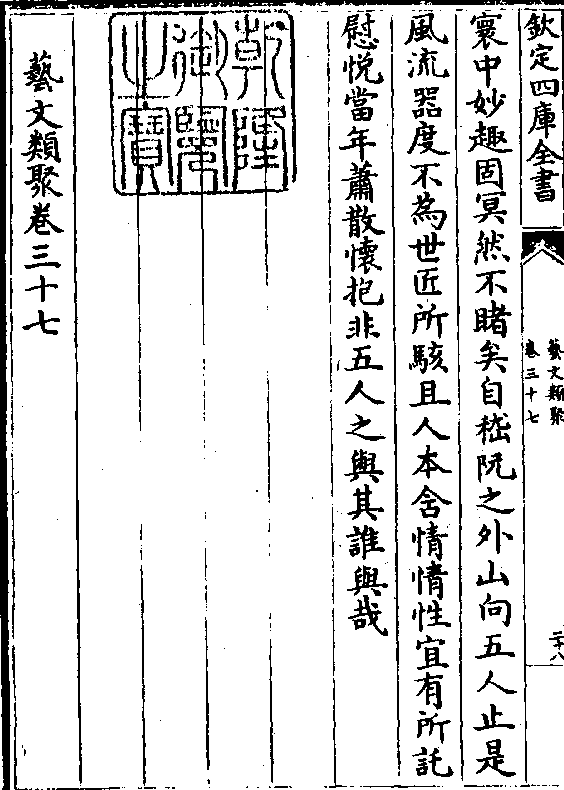 欽定四庫全書
藝文類聚
卷三十七
二十八
寰中妙趣固冥然不睹矣自嵇阮之外山向五人止是
風流器度不為世匠所駭且人本含情情性宜有所託
慰悅當年蕭散懷抱非五人之與其誰與哉
乾隆
御覽
之寶
藝文類聚卷三十七